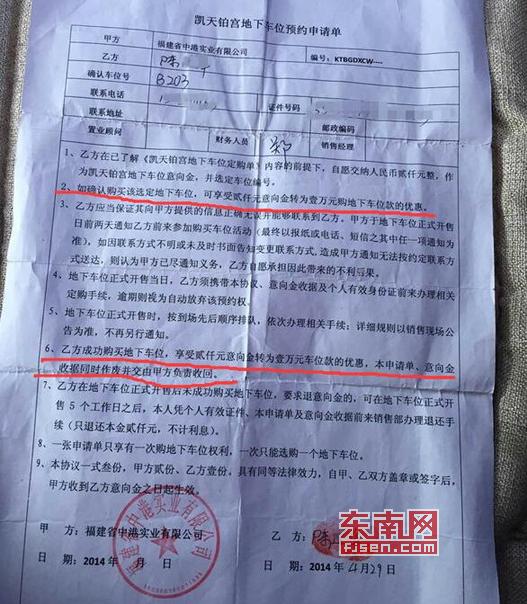 凯天铂宫地下车位预约申请单
甲方 福建省中港实业有限公司
乙方 陈 编号：KTBGDXCW----
确认车位号 B203
联系电话 证件号码
联系地址 邮政编码
置业顾问 财务人员 销售经理
1、乙方在已了解《凯天铂宫地下车位定购单》内容的前提下，自愿交纳人民币贰仟元整，作
为凯天铂宫地下车位意向金，并选定车位编号。
2、如确认购买该选定地下车位，可享受贰仟元意向金转为壹万元购地下车位款的优惠。
3、乙方应当保证其向甲方提供的信息正确无误并能够联系到乙方。甲方于地下车位正式开售
日前两天通知乙方前来参加购买车位活动（最终以报纸或电话、短信之其中任一项通知为
准），如因联系方式不明或未及时书面告知变更联系方式，造成甲方通知无法按约定联系方
式送达，则认为甲方已尽通知义务，乙方自愿承担因此带来的不利后果。
4、地下车位正式开售当日，乙方须携带本协议、意向金收据及个人有效身份证前来办理相关
定购手续，逾期则视为自动放弃该预约权。
5、地下车位正式开售时，按到场先后顺序排队，依次办理相关手续；详细规则以销售现场公
告为准，不再另行通知。
6、乙方成功购买地下车位，享受贰仟元意向金转为壹万元车位款的优惠，本申请单、意向金
收据同时作废并交由甲方负责收回。
7、乙方在地下车位正式开售后未成功购买地下车位，要求退意向金的，可在地下车位正式开
售5个工作日之后，本人凭个人有效证件、本申请单及意向金收据前来销售部办理退还手
续（只退还本金贰仟元，不计利息）。
8、一张申请单只享有一次购地下车位权利，一次只能选购一个地下车位。
9、本协议一式叁份，甲方贰份、乙方壹份，具有同等法律效力，自甲、乙双方盖章或签字后，
甲方收到乙方意向金之日起生效。
甲 方：福建省中港实业有限公司 乙 方：陈
日 期：2014年 月 日 日 期：2014年4月29日
福建省中港实业有限公司
东南网
fjsen.com